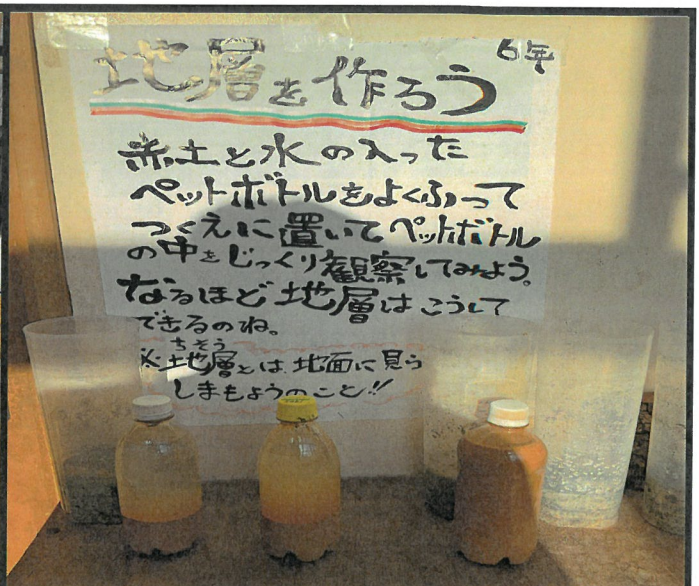 6年
地層を作ろう
赤土と水の入った
ペットボトルをよくふって
つくえに置いてペットボトル
の中をじっくり観察してみよう。
なるほど地層はこうして
できるのね。
ちそう
※地層とは、地面に見ら
しまもようのこと!!